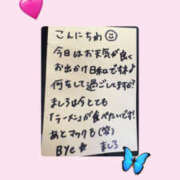 こんにちわ☺
今日はお天気が良く
お出かけ日和ですね♪
何をして過ごしますか?
ましろは今とても
「ラーメン」が食べたいです!
あとマックも(笑)
Bye☆ ましろ